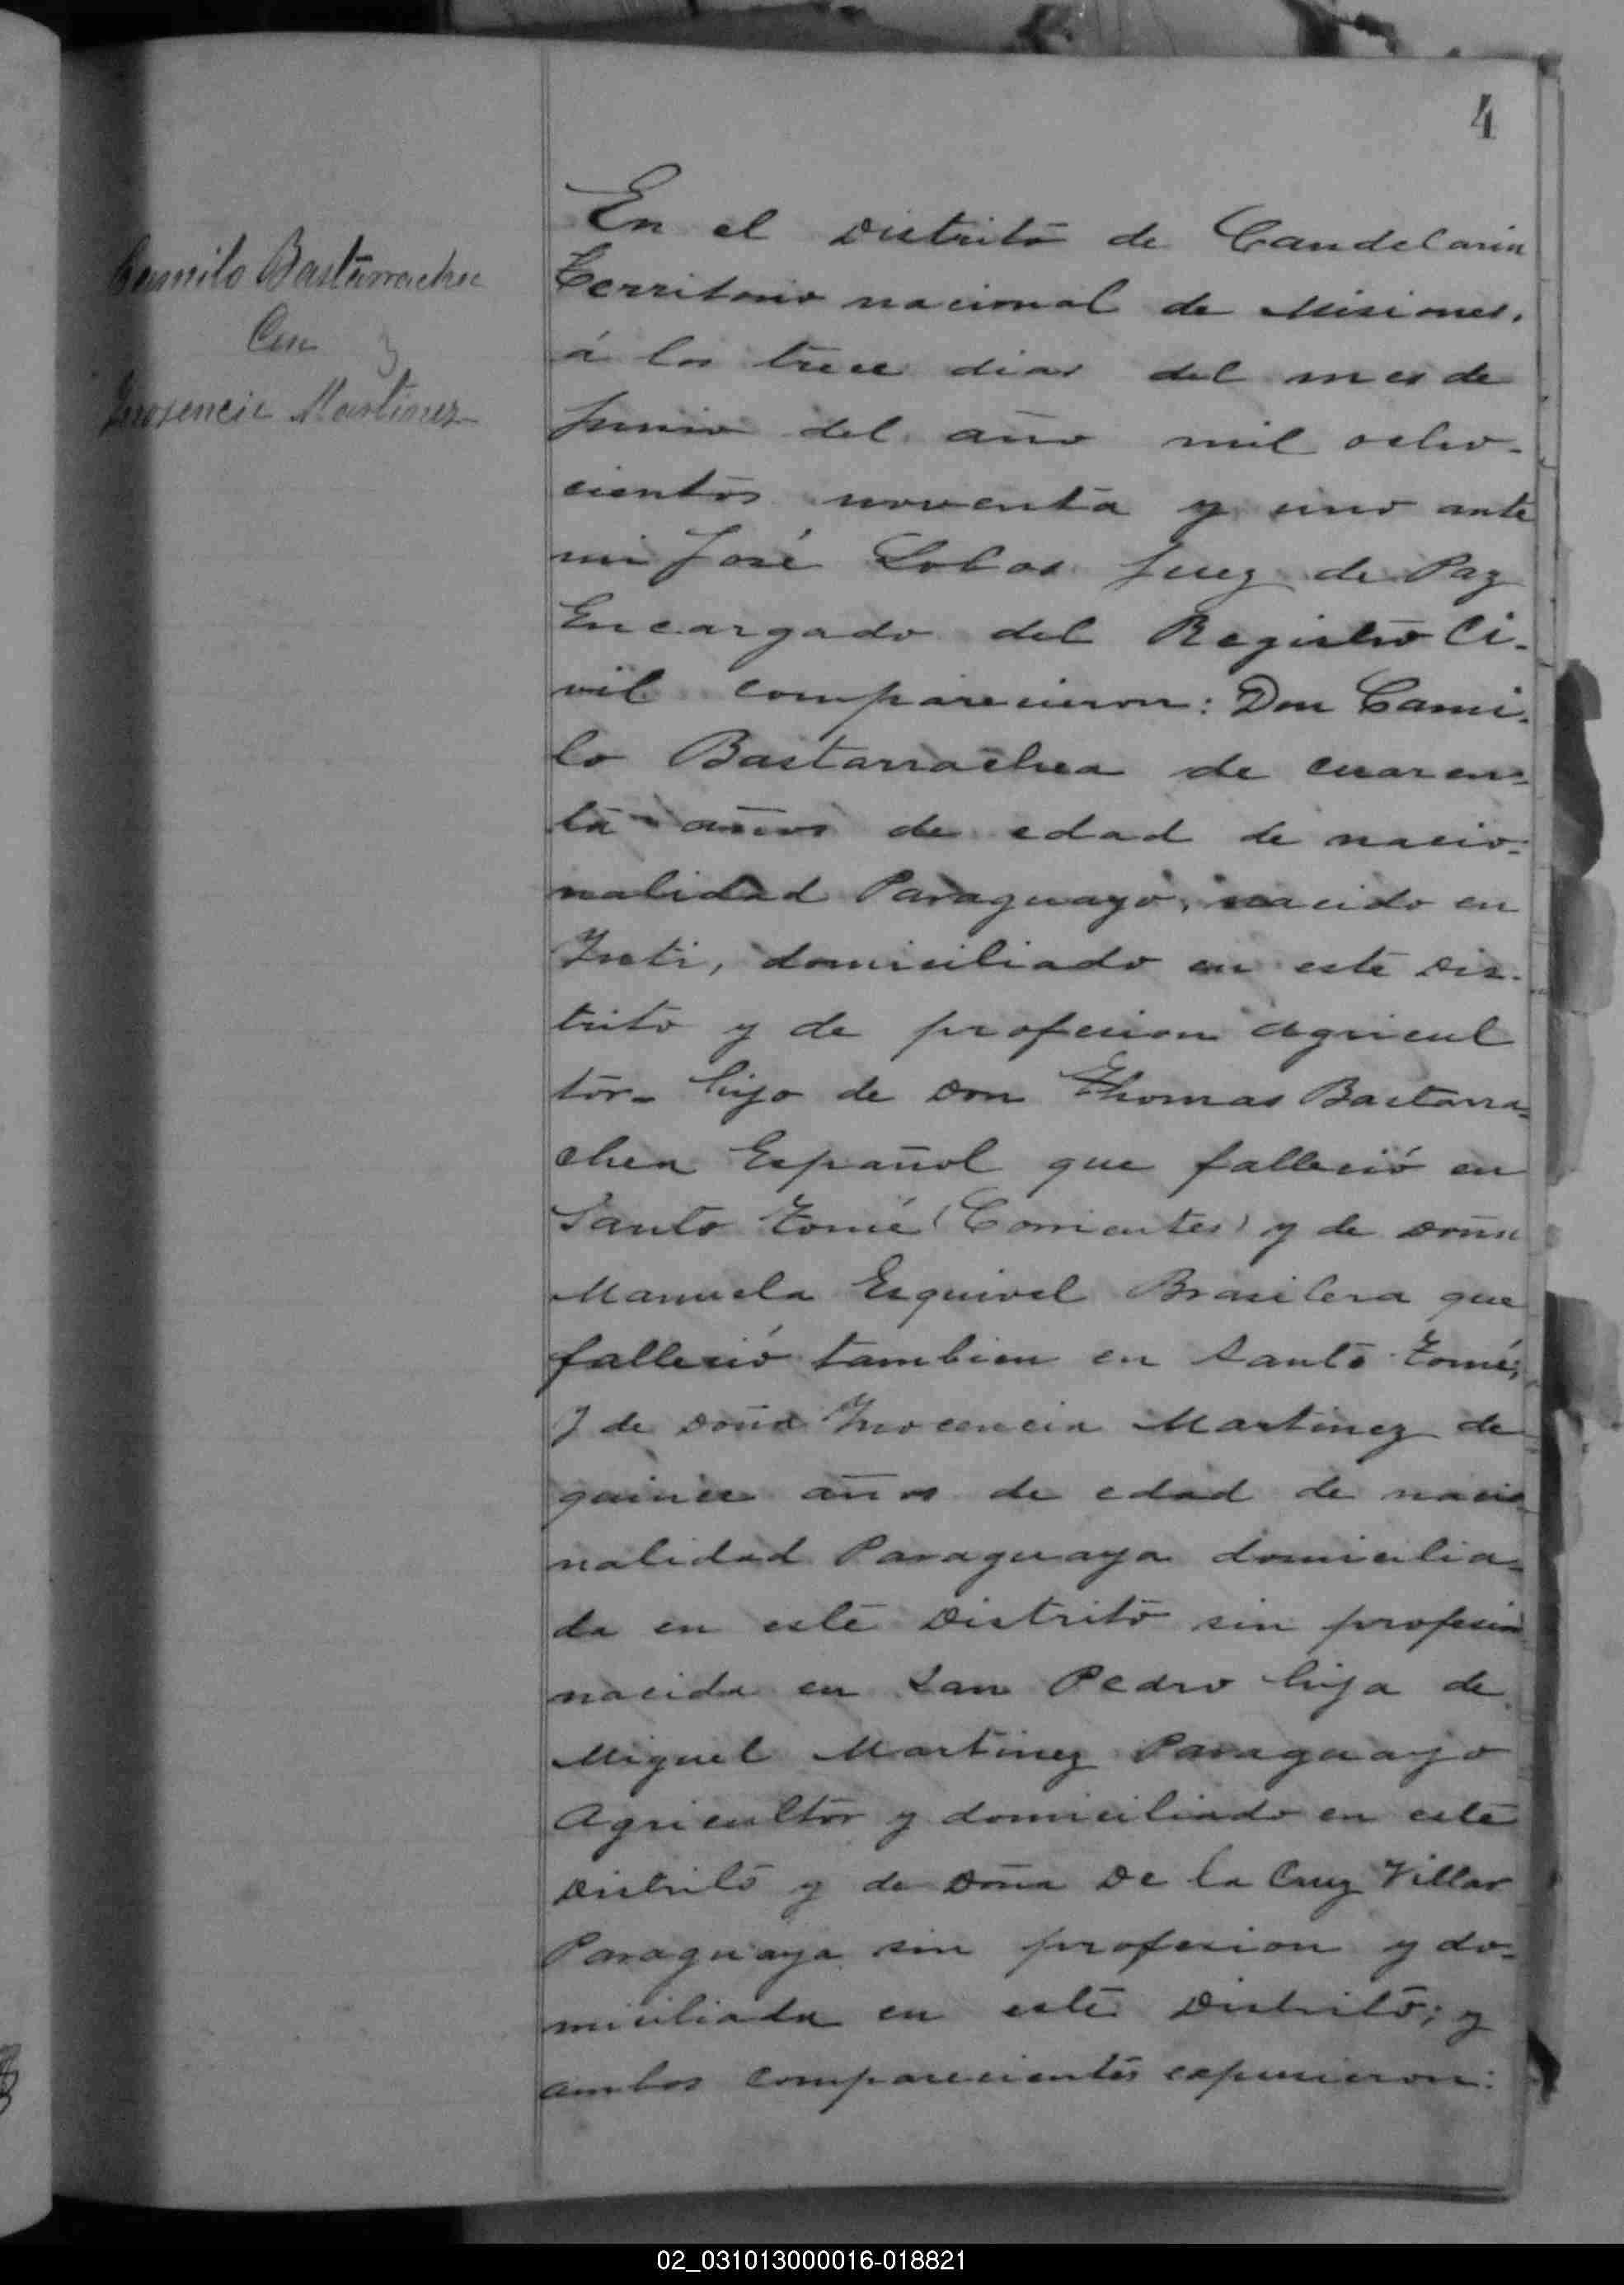 4
Camilo Bastarrachea
Con
Inosencia Martinez
En el Distrito de Candelaria
Territorio nacional de Misiones.
á los trece dias del mes de
Junio del año mil ocho-
cientos noventa y uno ante
mi José Lobos Juez de Paz
Encargado del Registro Ci-
vil comparecieron: Don Cami-
lo Bastarrachea de cuaren-
ta años de edad de nacio-
nalidad Paraguayo, nacido en
domiciliado en este Dis-
trito y de profesion agricul
tor- hijo de Don Thomas Bastarra-
chea Español que falleció en
Santo Tomé (Corrientes) y de Doña
Manuela Esquivel Brasilera que
falleció tambien en Santo Tomé;
Y de Doña Inocencia Martinez de
quince años de edad de nacio
nalidad Paraguaya domicilia-
da en este Distrito sin profesion
nacida en San Pedro hija de
Miguel Martinez Paraguayo
Agricultor y domiciliado en este
Distrito y de Doña De la Cruz Villar
Paraguaya sin profesion y do-
miciliada en este Distrito; y
ambos comparecientes expusieron:
02_031013000016-018821